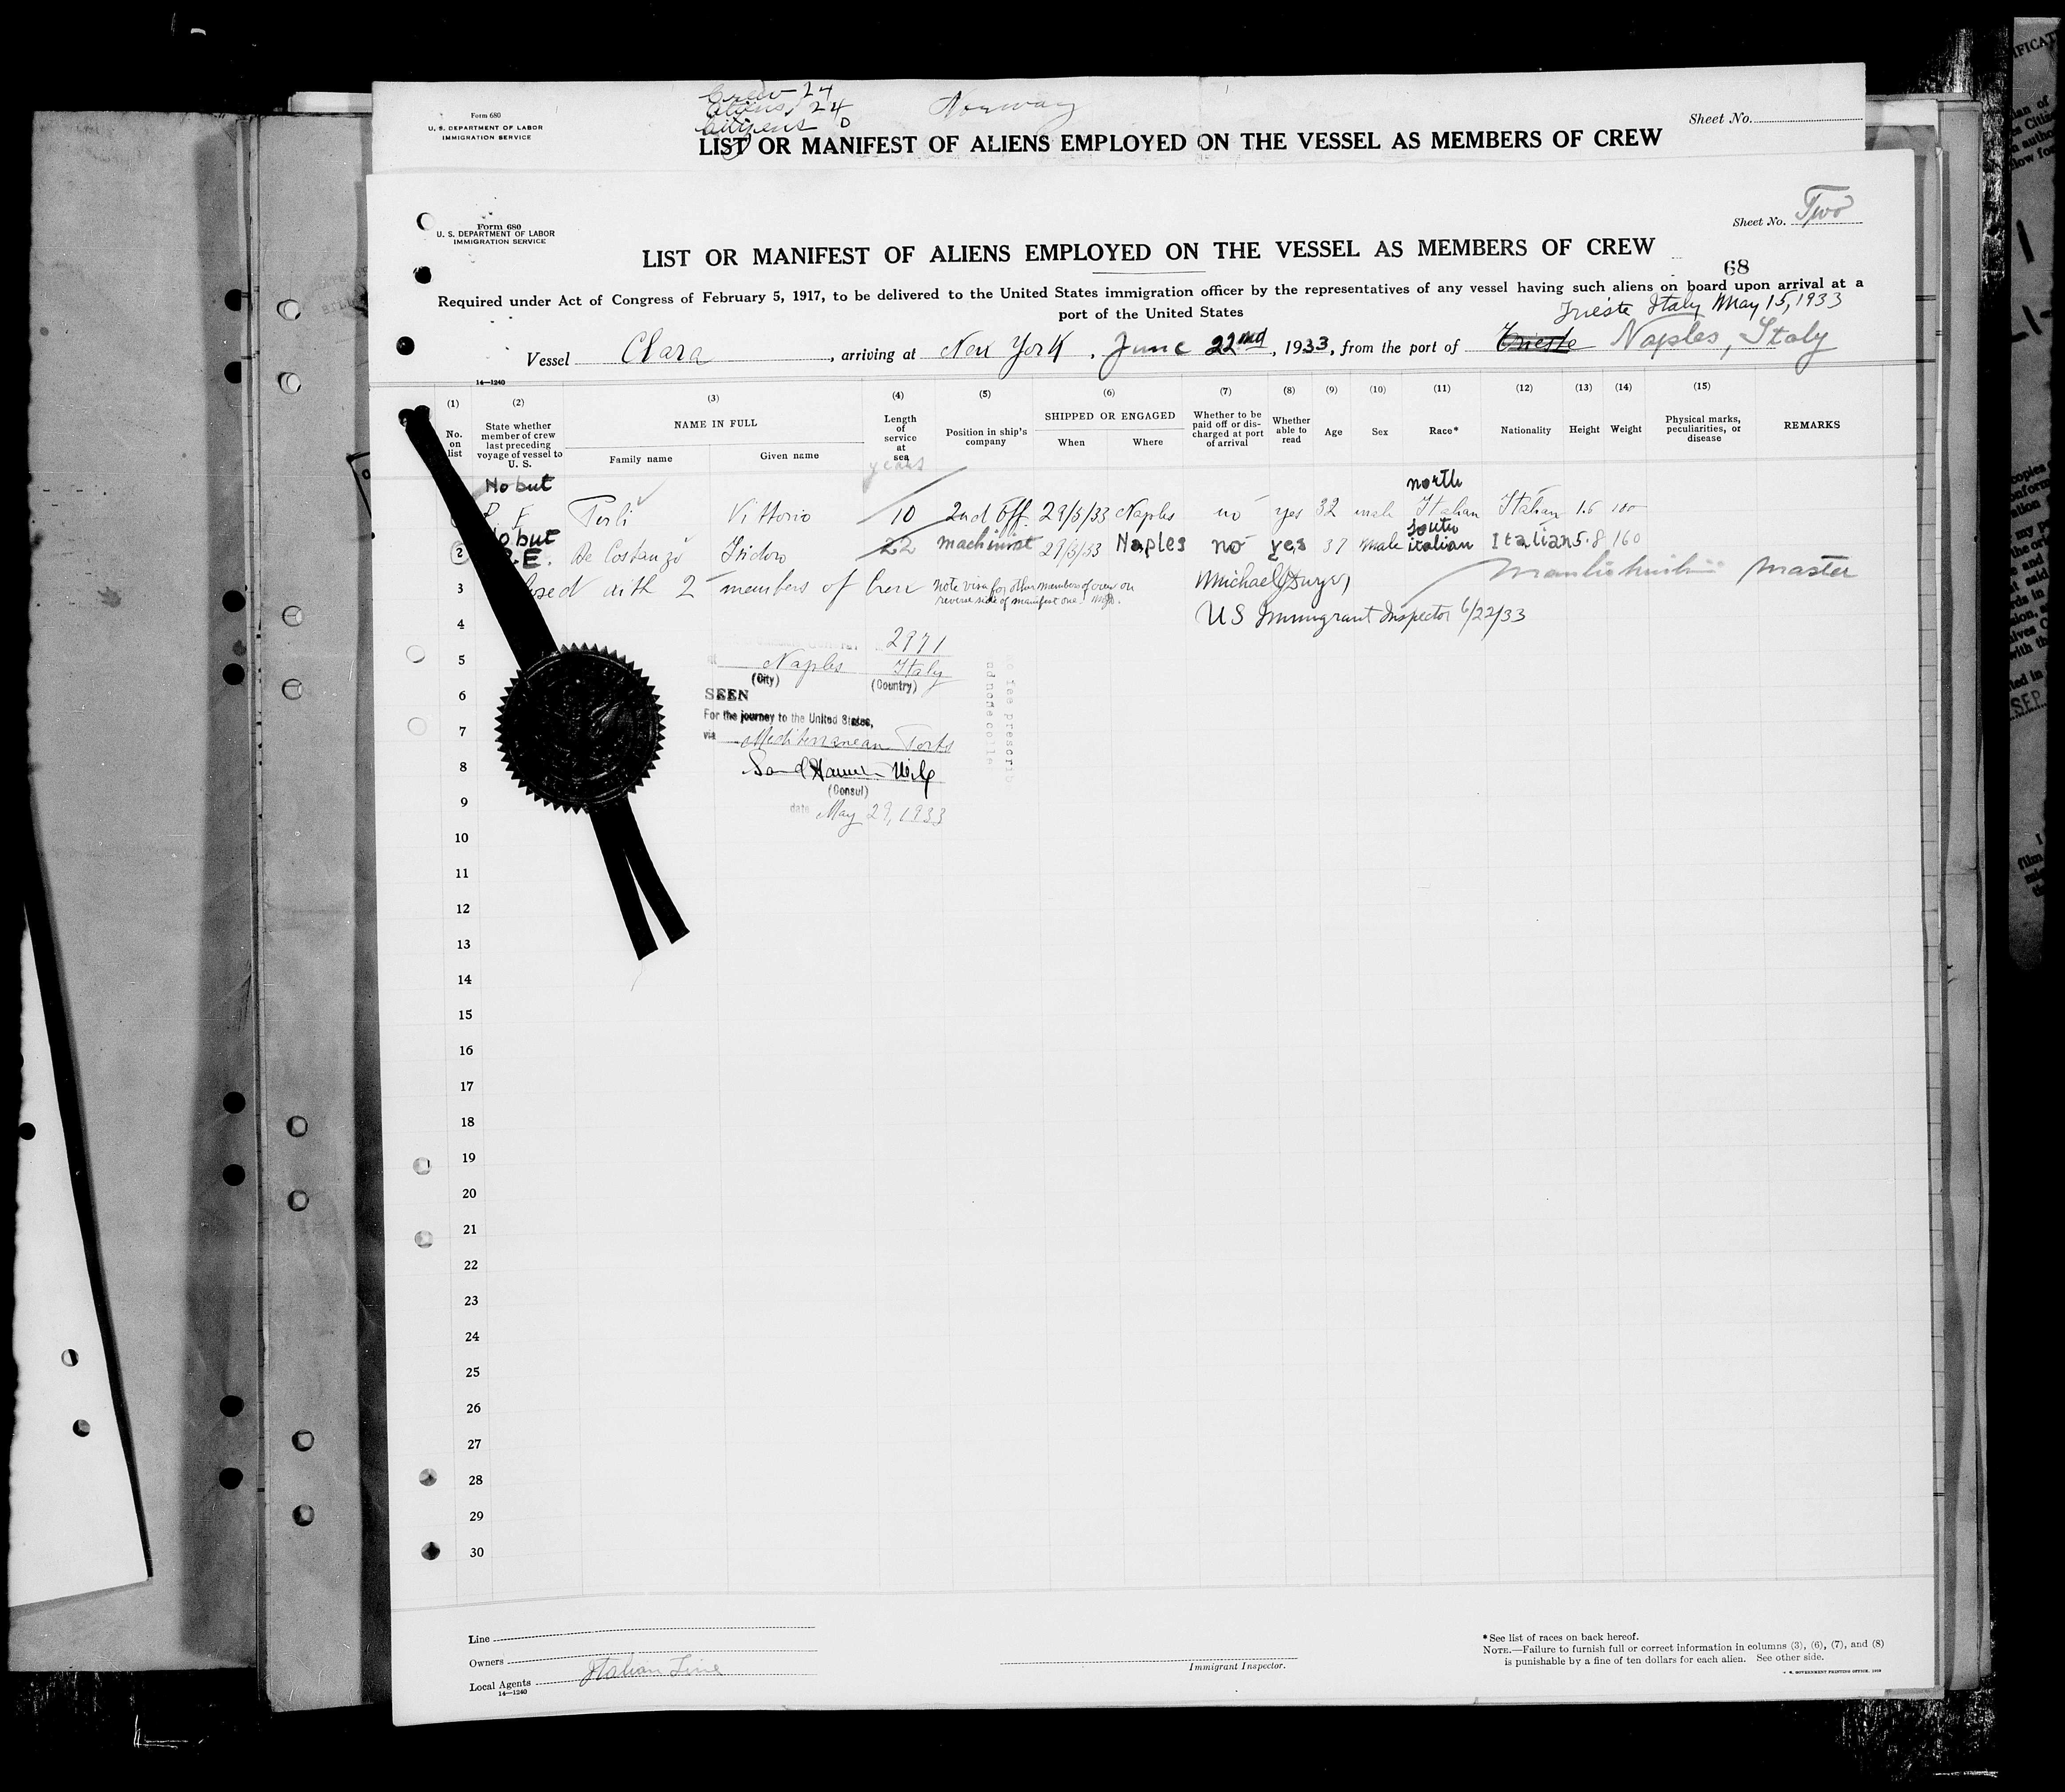 Crew 24
Aliens 24
Citizens 0
Norway
Form 680
U. S. DEPARTMENT OF LABOR
IMMIGRATION SERVICE
Sheet No.
LIST OR MANIFEST OF ALIENS EMPLOYED ON THE VESSEL AS MEMBERS OF CREW
Form 680
U. S. DEPARTMENT OF LABOR
IMMIGRATION SERVICE
Sheet No. Two
LIST OR MANIFEST OF ALIENS EMPLOYED ON THE VESSEL AS MEMBERS OF CREW
68
Required under Act of Congress of February 5, 1917, to be delivered to the United States immigration officer by the representatives of any vessel having such aliens on board upon arrival at a
port of the United States
Trieste Italy May 15, 1933
Vessel Clara, arriving at New York, June 22nd, 1933, from the port of Trieste Naples, Italy
14-1240
(1) (2) (3) (4) (5) (6) (7) (8) (9) (10) (11) (12) (13) (14) (15)
No. on list
State whether member of crew last preceding voyage of vessel to U. S.
NAME IN FULL
Family name
Given name
Length of service at sea
years
Position in ship's company
SHIPPED OR ENGAGED
When
Where
Whether to be paid off or discharged at port of arrival
Whether able to read
Age
Sex
Race*
Nationality
Height
Weight
Physical marks, peculiarities, or disease
REMARKS
No but north
Vittorio 10 2nd Off. 29/5/33 Naples no yes 32 male Italian Italian
but south
2 De Costanzo Isidoro 22 machinist 29/5/33 Naples no yes 37 male italian Italian 5.8 160
3 with 2 members of Crew
note visa for other members of crew on
reverse side of manifest one.
Michael J Dwyer
Master
4 US Immigrant Inspector 6/22/33
2971
5 Naples Italy
(City) (Country)
6 SEEN
For the journey to the United States,
7 via Mediterranean Ports
8
(Consul)
9 date May 29, 1933
no fee prescrib
nd none colle
10
11
12
13
14
15
16
17
18
19
20
21
22
23
24
25
26
27
28
29
30
Line
Owners
Local Agents Italian Line
14-1240
Immigrant Inspector.
*See list of races on back hereof.
NOTE.—Failure to furnish full or correct information in columns (3), (6), (7), and (8)
is punishable by a fine of ten dollars for each alien. See other side.